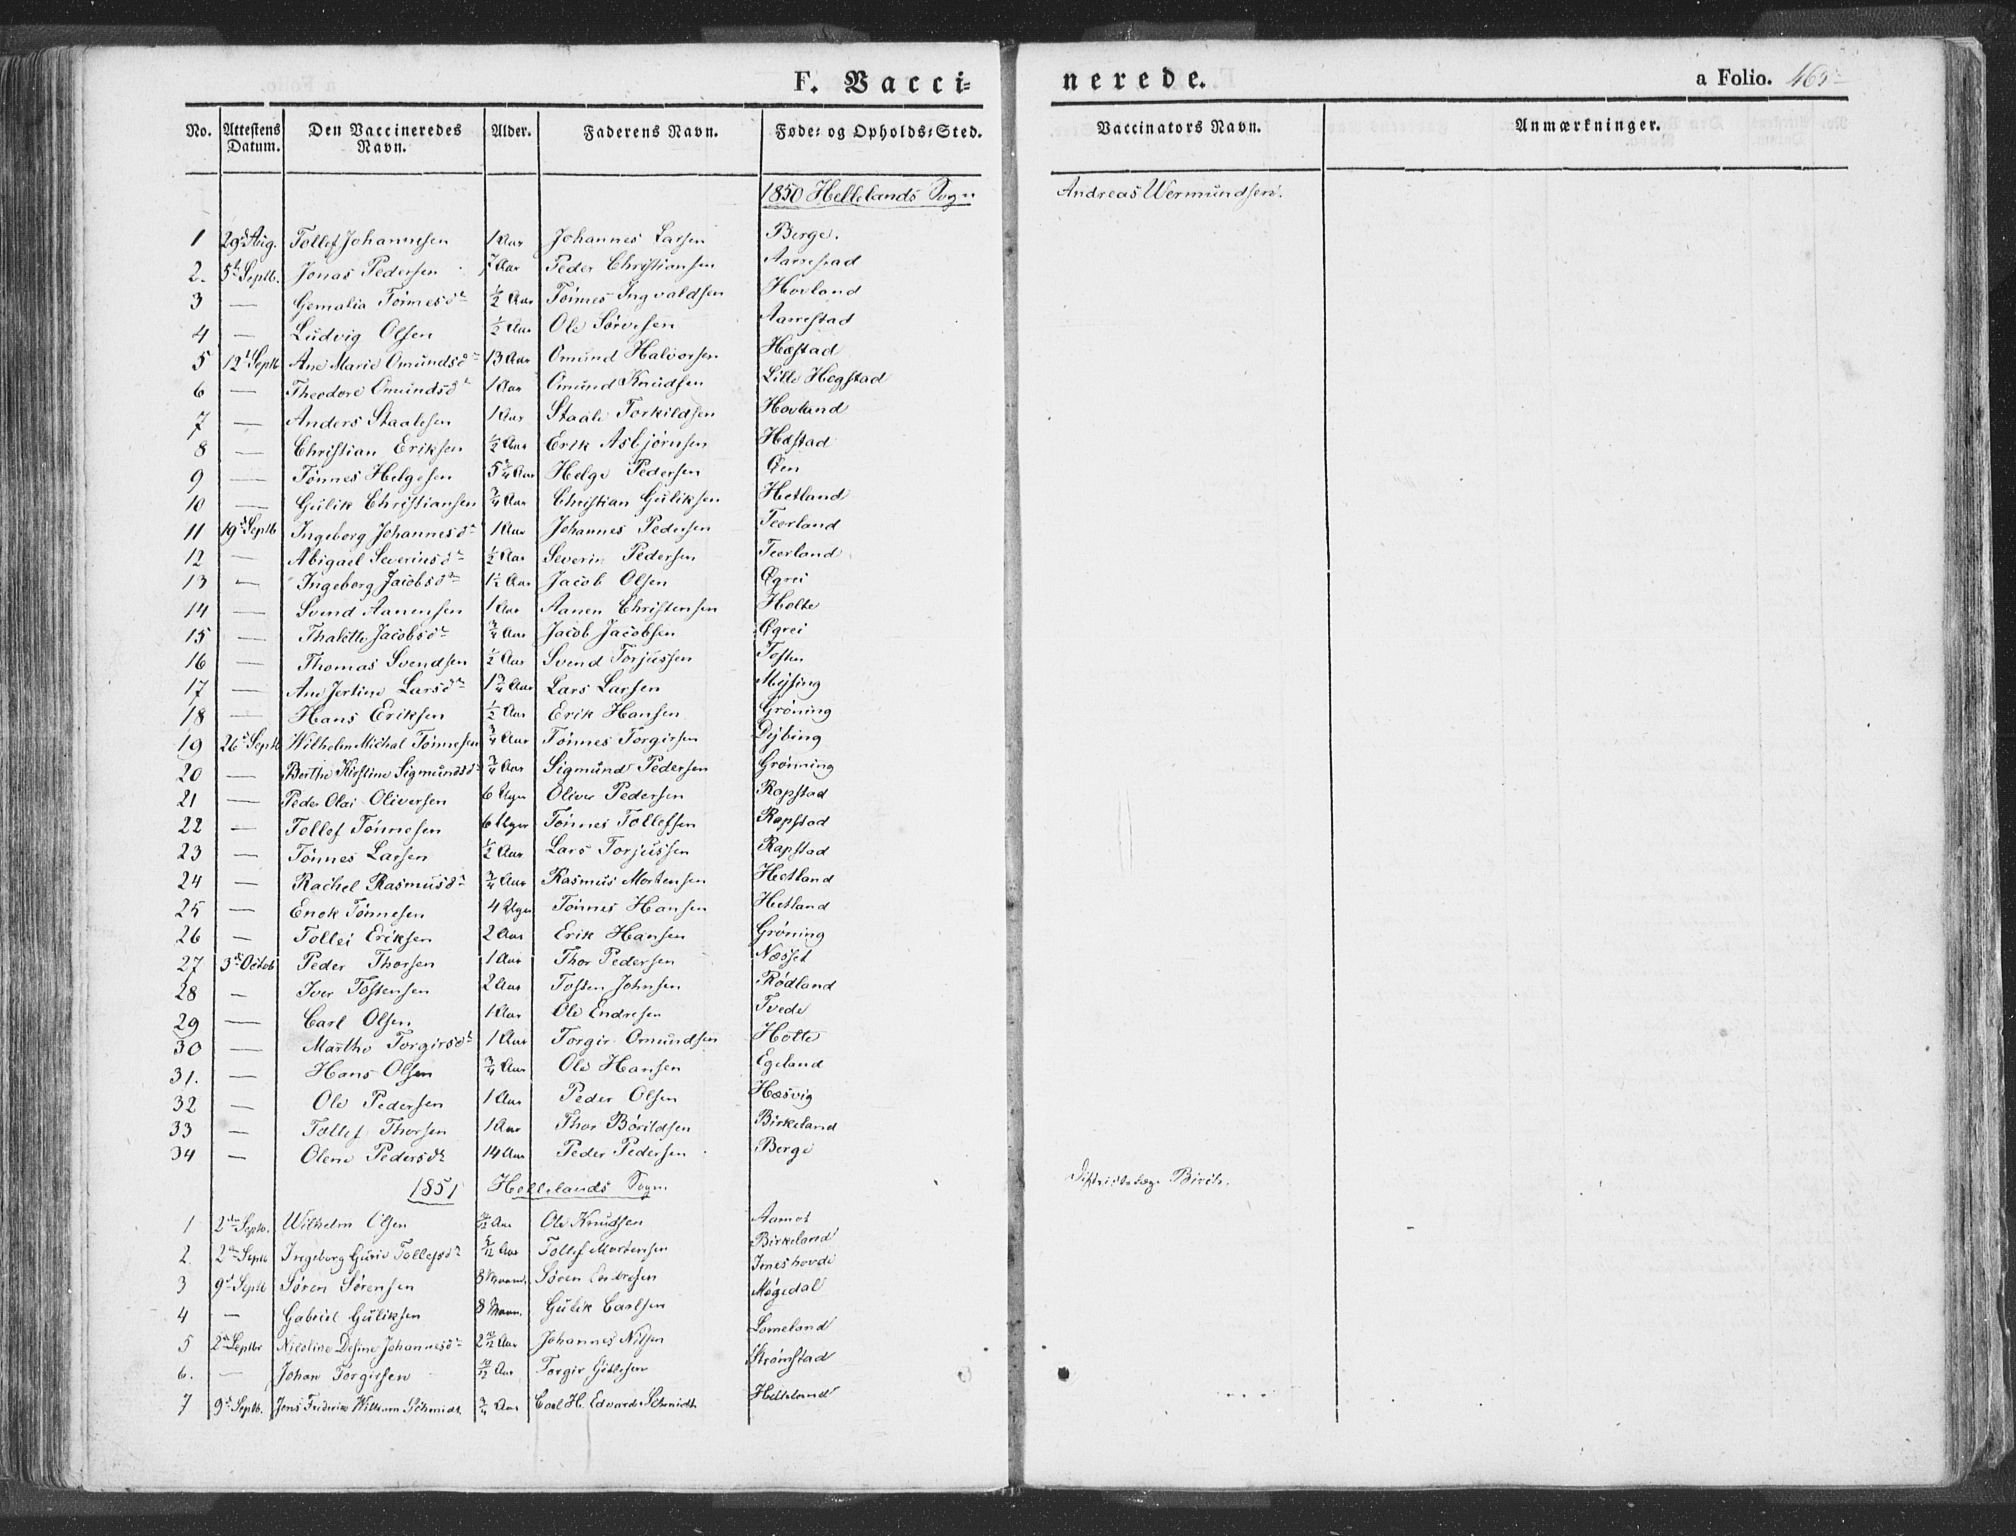 F. Vacci-
nerede.
a Folio. 465
No. Attestens Datum. Den Vaccineredes Navn. Alder. Faderens Navn. Føde- og Opholds-Sted. Vaccinators Navn. Anmærkninger.
1850 Hellelands Sogn Andreas Wermundsen.
1 29d Aug. Tollef Johannesen 1 Aar Johannes Larsen Berge.
2. 5t Septb. Jonas Pedersen Aar Peder Christiansen Aarrestad
3 — Gemalia Tønnesdr ½ Aar Tønnes Ingvaldsen Hovland
4 — Ludvig Olsen ½ Aar Ole Sørensen Aarrestad
5 12t Septb Ane Marie Omundsdr 13 Aar Omund Halvorsen Hæstad
6 — Theodore Omundsdr 1 Aar Omund Knudsen Lille Hegstad
7 — Anders Staalesen 1 Aar Staale Torkildsen Hovland
8 — Christian Eriksen ½ Aar Erik Asbjørnsen Hæstad
9 — Tønnes Helgesen 5¾ Aar Helge Pedersen Øen
10 — Gulik Christiansen ¾ Aar Christian Guliksen Hetland
11 19d Septb Ingeborg Johannesdr 1 Aar Johannes Pedersen Teorland
12 — Abigael Severinsdr ½ Aar Severin Pedersen Teorland
13 — Ingeborg Jacobsdr 1½ Aar Jacob Olsen Øgrei
14 — Svend Aanensen 1 Aar Aanen Christensen Holte
15 — Thalette Jacobsdr ¾ Aar Jacob Jacobsen Øgrei
16 — Thomas Svendsen ½ Aar Svend Torjussen Tosten
17 — Ane Jertine Larsdr 1¾ Aar Lars Larsen Mysing
18 — Hans Eriksen ½ Aar Erik Hansen Grøning
19 26d Septb Wilhelm Michal Tønnesen ¾ Aar Tønnes Torgirsen Dybing
20 — Berthe Kirstine Sigmundsdr ¾ Aar Sigmund Pedersen Grønning
21 — Peder Olai Oliversen 6 Uger Oliver Pedersen Rapstad
22 — Tollef Tønnesen 6 Uger Tønnes Tollefsen Rapstad
23 — Tønnes Larsen ½ Aar Lars Torjussen Rapstad
24 — Rachel Rasmusdr ¾ Aar Rasmus Mortensen Hetland
25 — Enok Tønnesen 4 Uger Tønnes Hansen Hetland
26 — Tollei Eriksen 2 Aar Erik Hansen Grøning
27 3d Octob Peder Thorsen 1 Aar Thor Pedersen Næsset
28 — Iver Tostensen 2 Aar Tosten Johnsen Rødland
29 — Carl Olsen 1 Aar Ole Endresen Tvede
30 — Marthe Torgirsdr 1 Aar Torgir Omundsen Holte
31. — Hans Olsen ¾ Aar Ole Hansen Egeland
32 — Ole Pedersen 1 Aar Peder Olsen Hæsvig
33 — Tollef Thorsen 1 Aar Thor Børildsen Birkeland
34 — Olene Pedersdr 14 Aar Peder Pedersen Berge
1851 Hellelands Sogn. Districtslæge Birch.
1 2den Septb. Wilhelm Olsen Aar Ole Knudsen Aamot
2. 2den Septb Ingeborg Gurie Tollefsdr 5/12 Aar Tollef Mortensen Birkeland
3 9d Septb Søren Sørensen 8 Maan. Søren Endresen Jneshovde
4 — Gabriel Guliksen 8 Maan. Gulik Carlsen Møgedal
5 2den Septbr Nicoline Desine Johannesdr 2 Aar Johannes Nilsen Lomeland
6. — Johan Torgirsen 10/12 Aar Torgir Gitlesen Strømstad
7 9d Septb. Jens Frederik William Schmidt ¾ Aar Carl H. Edvard Schmidt Helleland